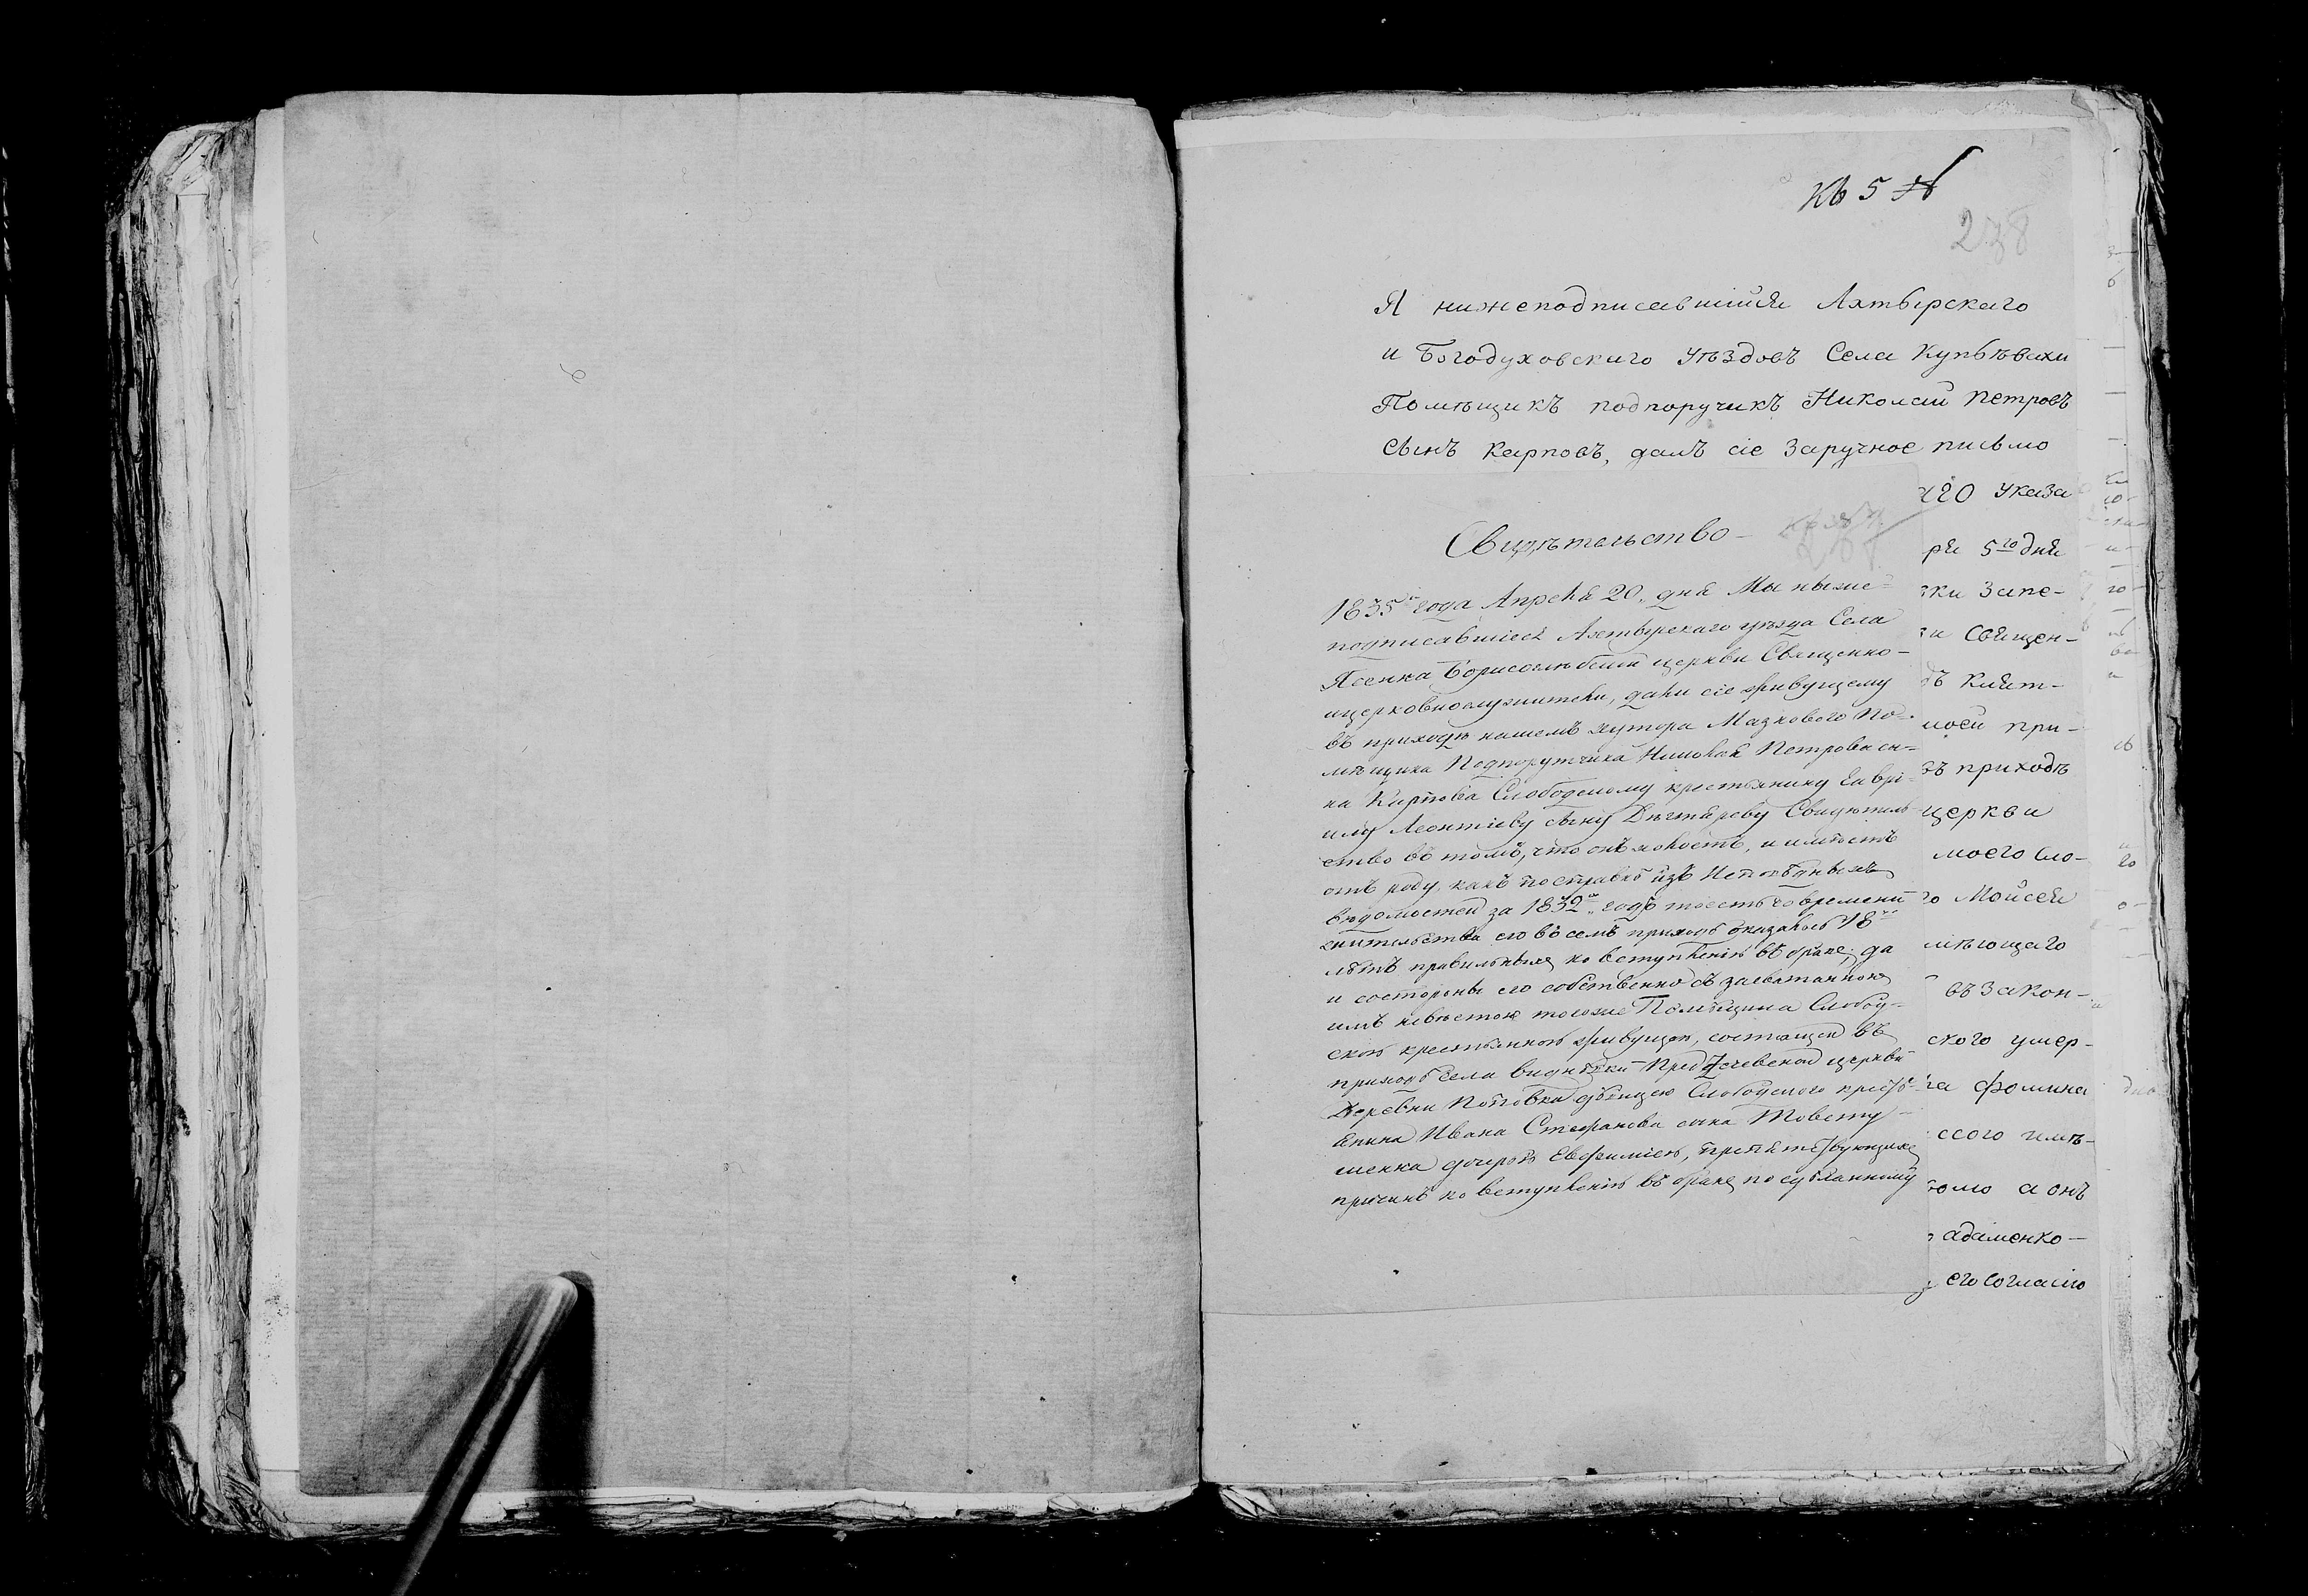 Къ 5
238
Я нижеподписавшійся Ахтырскаго
и Богодуховскаго Уѣздовъ Села Купьѣвахи
Помѣщикъ подпоручикъ Николай Петровъ
сынъ Карповъ, далъ сіе Заручное письмо
Указа
5го дня
Запе-
Священ-
Кіят-
моей при-
приходѣ
церкви
моего Сло-
Мойсея
въ Закон-
ского умер-
фомина
а онъ
адаменко-
его согласію
Свидѣтельство
1835го года Апреля 20. дня Мы ниже-
подписавшіеся Ахтырскаго уѣзда Села
Ясенка Борисоглѣбской церкви Священно-
ицерковнослужители, дали сіе живущему
въ приходѣ нашемъ хутора Мазкового По-
мѣщика Подпорутчика Николая Петрова сы-
на Карпова Слободскому крестьянину Гаврі-
илу Леонтіеву сыну Дѣгтяреву Свидѣтель-
ство въ томъ, что онъ холостъ, и имѣетъ
отъ роду, какъ посправкѣ изъ Исповѣдныхъ
вѣдомостей за 1832й годъ тоесть со времени
жительства его въ семъ приходѣ оказалось 18ть
лѣтъ правильныхъ ко вступленію въ бракъ; да
и состороны его собственно съ засватанною
имъ невѣстою тогоже Помѣщика Слобод-
скою крестьянкою живущею, состоящей въ
приходѣ Села Видновки Предтечевской церкви
Деревни Поповки дѣвицею Слободского кресть-
янина Ивана Стефанова сына Товсту-
шенка дочерью Евфиміею, препятствующихъ
причинъ ко вступленію въ бракъ по сдѣланному